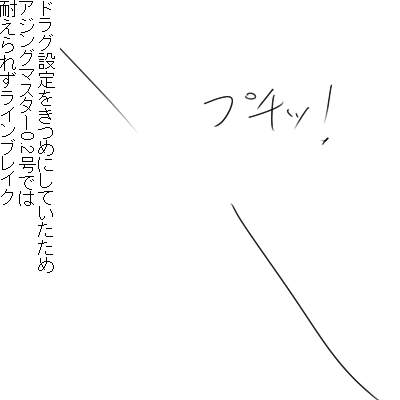 ドラグ設定をきつめにしていたため
アジングマスター0.2号では
耐えられずラインブレイク
プチッ!